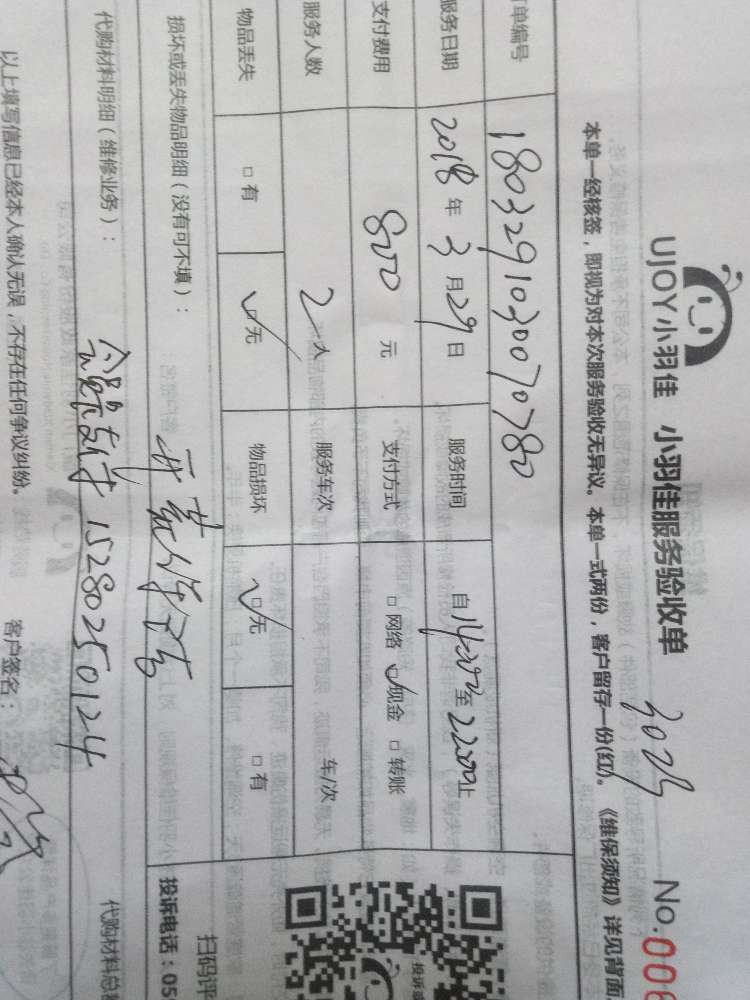 UJOY小羽佳 小羽佳服务验收单
No.006
本单一经核签，即视为对本次服务验收无异议。本单一式两份，客户留存一份(红)。《维保须知》详见背面
单编号 1803291030070780
服务日期 2018年3月29日 服务时间 自14:00至22:00止
支付费用 800元 支付方式 □网络 ☑现金 □转账
服务人数 2人 服务车次 车/次
物品丢失 □有 ☑无 物品损坏 ☑无 □有
损坏或丢失物品明细（没有可不填）：
开荒保洁
代购材料明细（维修业务）： 代购材料总
15280250124
以上填写信息已经本人确认无误，不存在任何争议纠纷。 客户签名：
扫码评
投诉电话：05